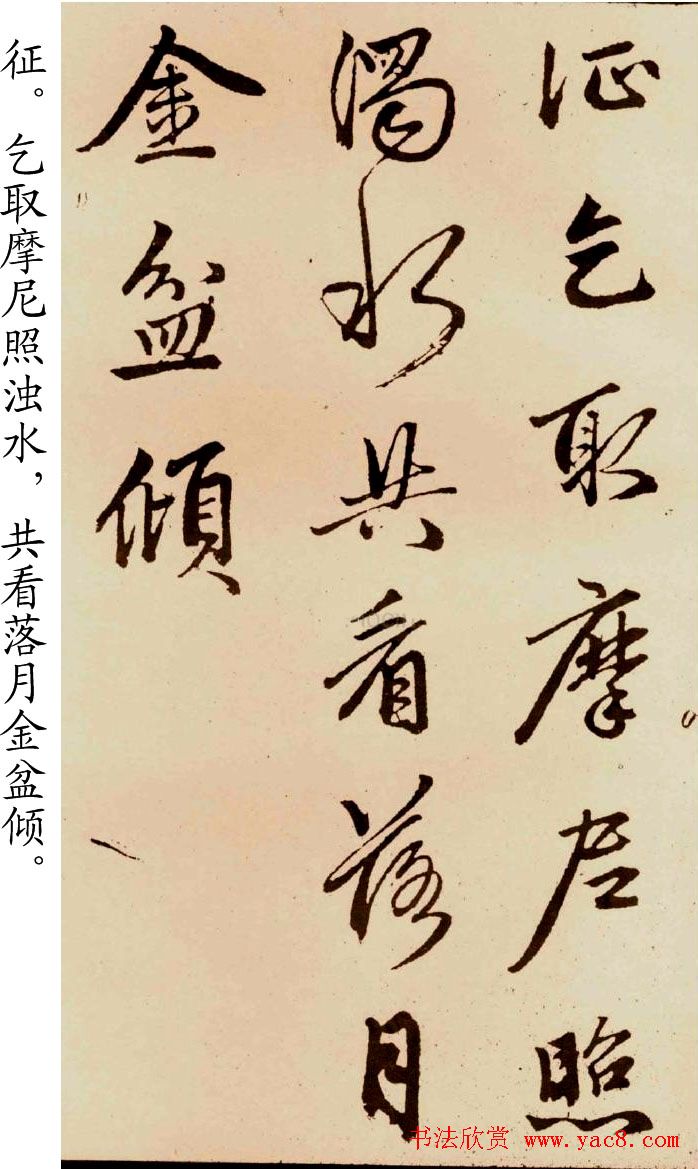 征乞取摩尼照
濁水共看落月
金盆傾
征。乞取摩尼照浊水，共看落月金盆倾。
书法欣赏 www.yac8.com